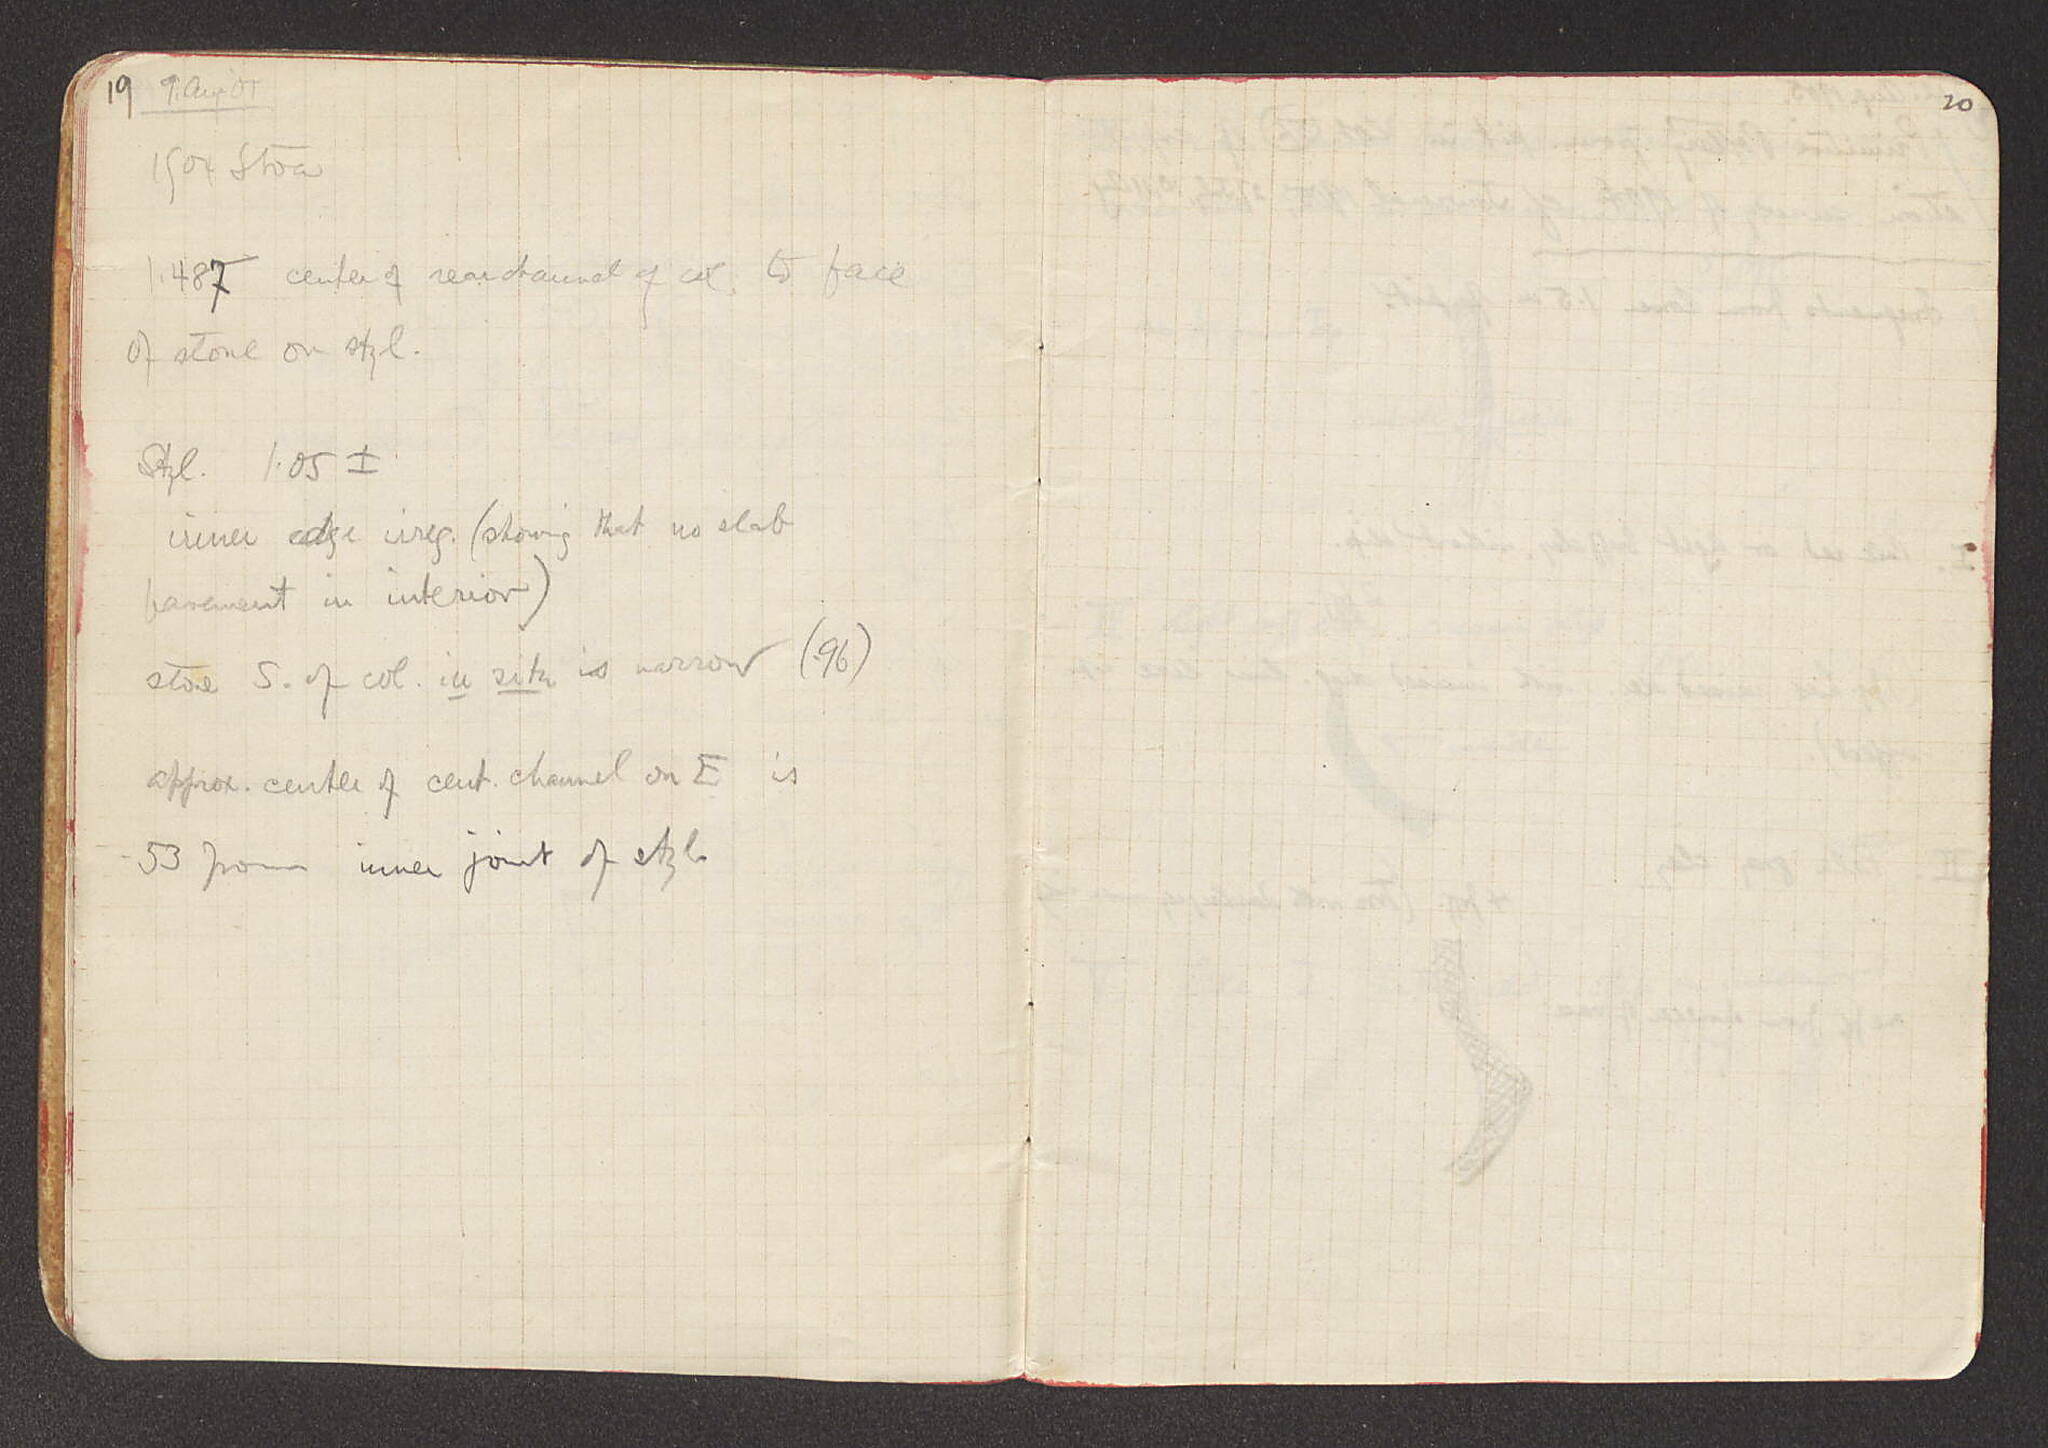 19 9. Aug 05
1904 Stoa
1.487 center of rear channel of col. to face
of stone on styl.
Styl. 1.05 ±
inner edge irreg. (showing that no slab
pavement in interior)
stone S. of col. in situ is narrow (.96)
approx. center of cent. channel on E is
.53 from inner joint of styl.
20